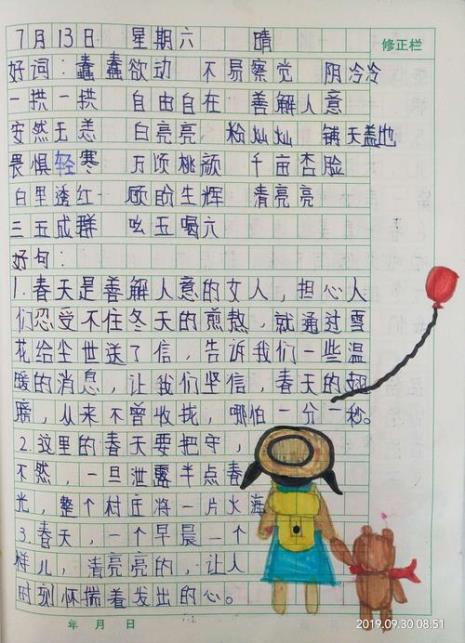 7月13日 星期六 晴
修正栏
好词：蠢蠢欲动 不易察觉 阴冷冷
一拱一拱 自由自在 善解人意
安然无恙 白亮亮 粉灿灿 铺天盖地
畏惧轻寒 万顷桃颜 千亩杏脸
白里透红 顾盼生辉 清亮亮
三五成群 吆五喝六
好句：
1.春天是善解人意的女人，担心人
们忍受不住冬天的煎熬，就通过雪
花给尘世送了信，告诉我们一些温
暖的消息，让我们坚信，春天的翅
膀，从来不曾收拢，哪怕一分一秒。
2.这里的春天要把守，
不然，一旦泄露半点春
光，整个村庄将一片火海
3.春天，一个早晨一个
样儿，清亮亮的，让人
时刻怀揣着发出的心。
年 月 日
2019.09.30 08:51